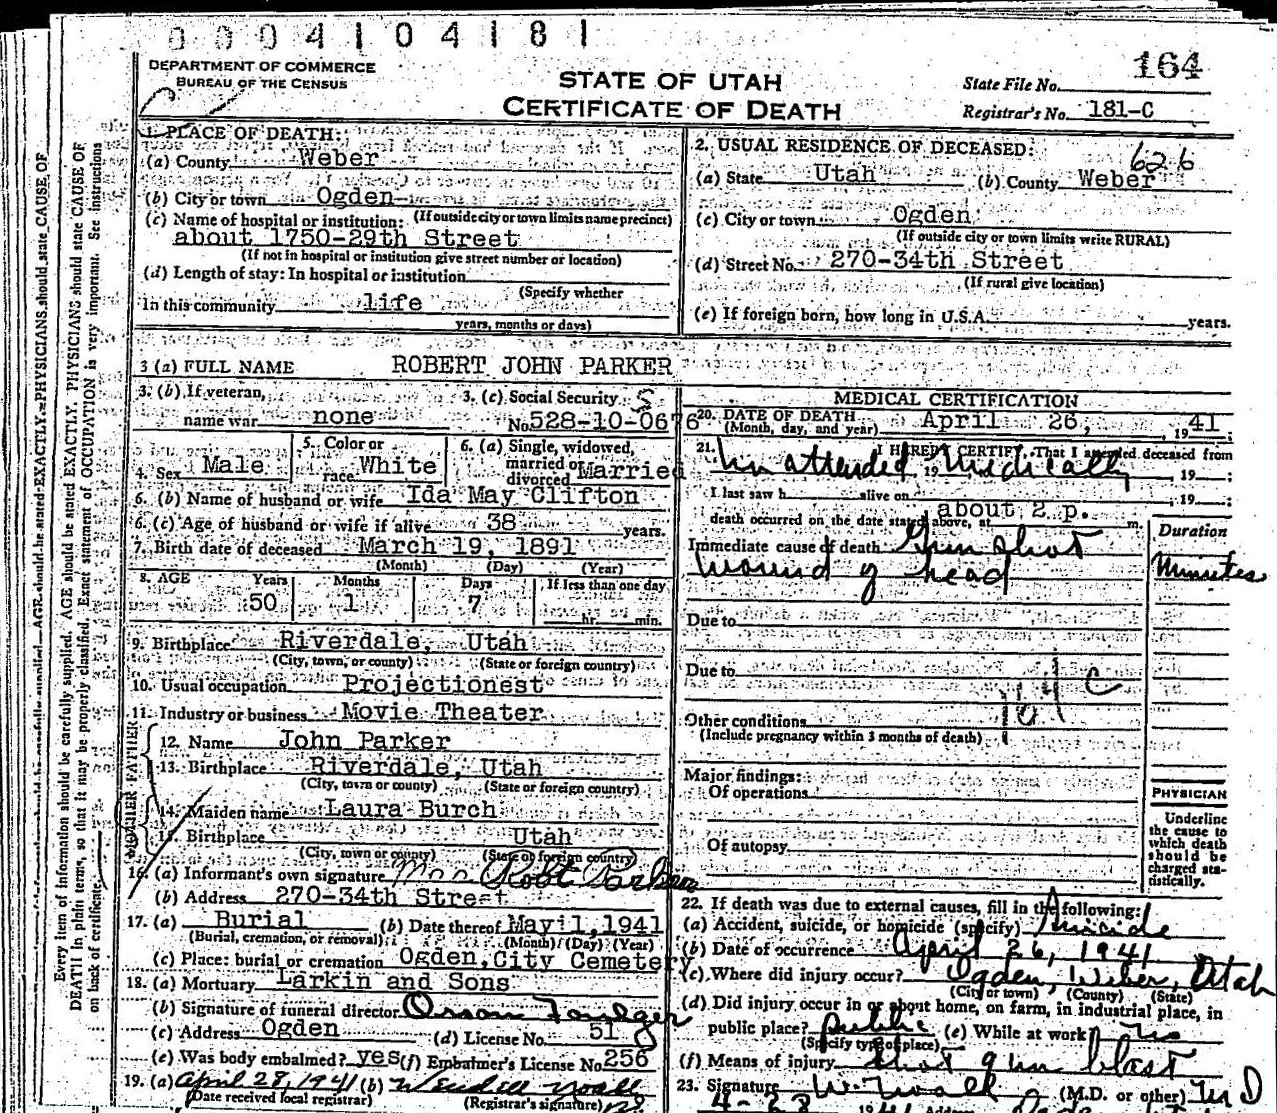 0004104181
DEPARTMENT OF COMMERCE
BUREAU OF THE CENSUS
STATE OF UTAH
CERTIFICATE OF DEATH
State File No. 164
Registrar's No. 181-C
1. PLACE OF DEATH:
(a) County Weber
(b) City or town Ogden
(If outside city or town limits name precinct)
(c) Name of hospital or institution:
about 1750-29th Street
(If not in hospital or institution give street number or location)
(d) Length of stay: In hospital or institution
(Specify whether
In this community life
years, months or days)
2. USUAL RESIDENCE OF DECEASED:
626
(a) State Utah (b) County Weber
(c) City or town Ogden
(If outside city or town limits write RURAL)
(d) Street No. 270-34th Street
(If rural give location)
(e) If foreign born, how long in U.S.A. years.
3 (a) FULL NAME ROBERT JOHN PARKER
3. (b) If veteran, name war none
3. (c) Social Security No. 528-10-0676
4. Sex Male
5. Color or race White
6. (a) Single, widowed, married or divorced Married
6. (b) Name of husband or wife Ida May Clifton
6. (c) Age of husband or wife if alive 38 years.
7. Birth date of deceased March 19, 1891
(Month) (Day) (Year)
8. AGE Years Months Days If less than one day
50 1 7 hr. min.
9. Birthplace Riverdale, Utah
(City, town, or county) (State or foreign country)
10. Usual occupation Projectionest
11. Industry or business Movie Theater
FATHER
12. Name John Parker
13. Birthplace Riverdale, Utah
(City, town or county) (State or foreign country)
MOTHER
14. Maiden name Laura Burch
15. Birthplace Utah
(City, town or county) (State or foreign country)
16. (a) Informant's own signature Mrs Robt Parker
(b) Address 270-34th Street
17. (a) Burial (b) Date thereof May 1, 1941
(Burial, cremation, or removal) (Month) (Day) (Year)
(c) Place: burial or cremation Ogden, City Cemetery
18. (a) Mortuary Larkin and Sons
(b) Signature of funeral director Orson Foulger
(c) Address Ogden (d) License No. 51
(e) Was body embalmed? yes (f) Embalmer's License No. 256
19. (a) April 28, 1941 (b)
(Date received local registrar) (Registrar's signature)
MEDICAL CERTIFICATION
20. DATE OF DEATH April 26, 1941
(Month, day, and year)
21. I HEREBY CERTIFY, That I attended deceased from
Unattended 19 Medically, 19 ;
I last saw h alive on , 19 ;
death occurred on the date stated above, at about 2 p. m.
Duration
Immediate cause of death Gun shot
wound of head Minutes
Due to
Due to
164 C
Other conditions
(Include pregnancy within 3 months of death)
Major findings:
Of operations
Of autopsy
PHYSICIAN
Underline
the cause to
which death
should be
charged sta-
tistically.
22. If death was due to external causes, fill in the following:
(a) Accident, suicide, or homicide (specify) Suicide
(b) Date of occurrence April 26, 1941
(c) Where did injury occur? Ogden, Weber, Utah
(City or town) (County) (State)
(d) Did injury occur in or about home, on farm, in industrial place, in
public place? public (e) While at work? no
(Specify type of place)
(f) Means of injury shot gun blast
23. Signature (M.D. or other) M D
4-28
Every item of information should be carefully supplied. AGE should be stated EXACTLY. PHYSICIANS should state CAUSE OF
DEATH in plain terms, so that it may be properly classified. Exact statement of OCCUPATION is very important. See instructions
on back of certificate.